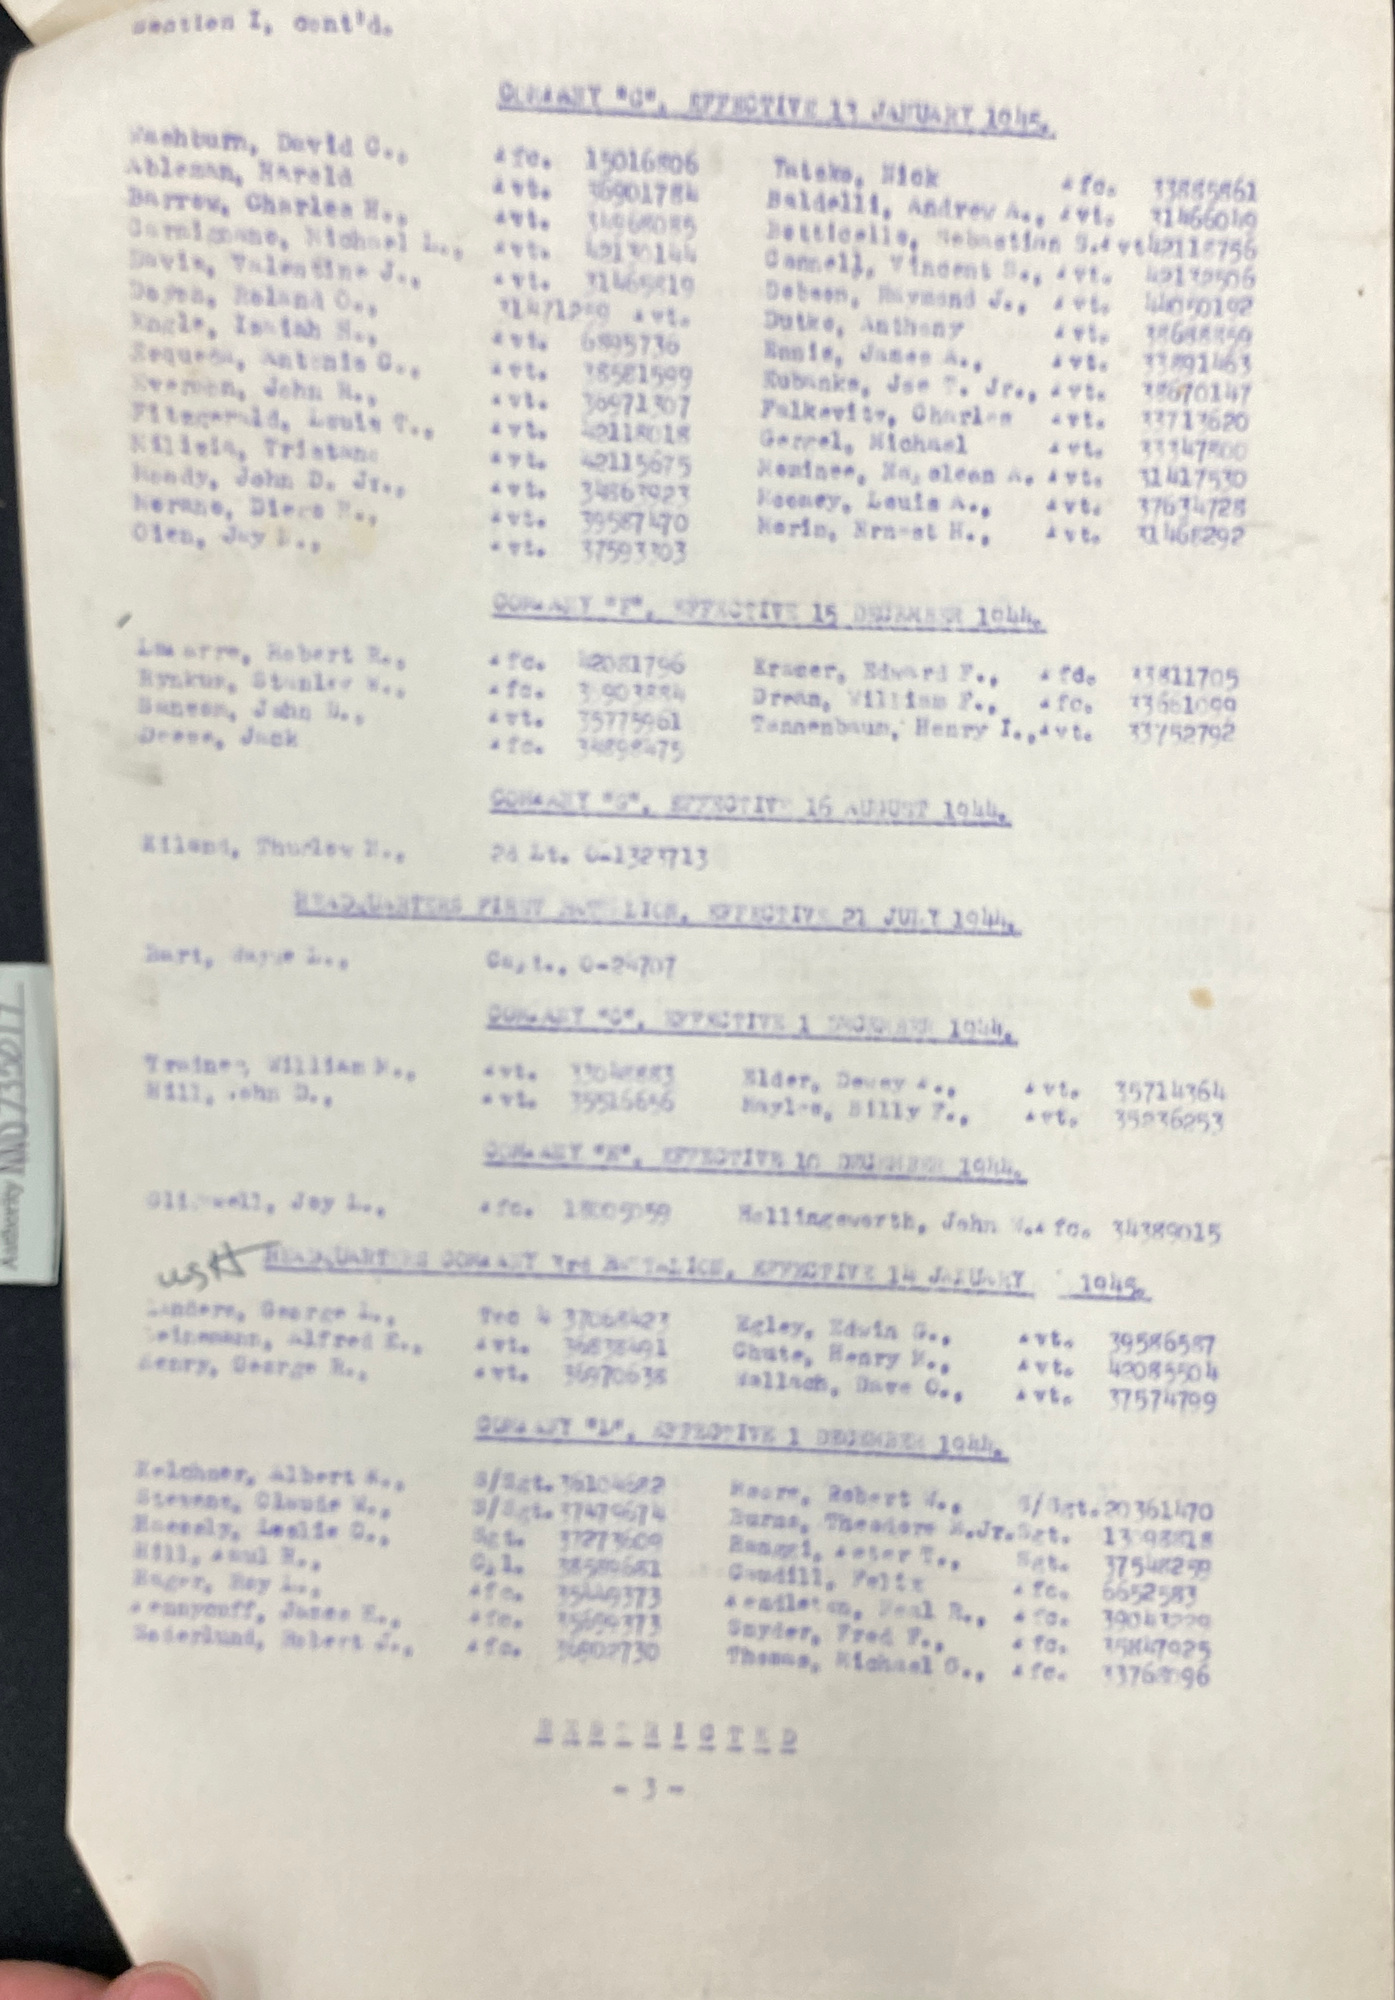 Section I, cont'd.
COMPANY "G", EFFECTIVE 13 JANUARY 1945.
Washburn, David C., Pfc. 15016806 Tateko, Nick Pfc. 33885861
Ableman, Harold Pvt. 36901784 Baldelli, Andrew A., Pvt. 31466049
Barrow, Charles H., Pvt. 34968085 Botticello, Sebastian S. Pvt 42118756
Carmignano, Michael L., Pvt. 42130144 Connell, Vincent S., Pvt. 42132506
Davis, Valentine J., Pvt. 31465819 Dobson, Raymond J., Pvt. 44050192
Doyon, Roland O., 31471289 Pvt. Dutko, Anthony Pvt. 38688859
Engle, Isaiah H., Pvt. 6895736 Ennis, James A., Pvt. 33891463
Esqueda, Antonio C., Pvt. 38581599 Eubanks, Joe T. Jr., Pvt. 38670147
Everson, John R., Pvt. 36971307 Falkevitz, Charles Pvt. 33713620
Fitzgerald, Louis T., Pvt. 42118018 Gerrel, Michael Pvt. 33347800
Milisia, Tristano Pvt. 42115675 Mominee, Napoleon A. Pvt. 31417530
Moody, John D. Jr., Pvt. 34863923 Mooney, Louis A., Pvt. 37634728
Morano, Diego R., Pvt. 39587470 Morin, Ernest H., Pvt. 31468292
Olen, Jay L., Pvt. 37593303
COMPANY "F", EFFECTIVE 15 DECEMBER 1944.
Robert R., Pfc. 42081796 Kramer, Edward F., Pfc. 33811705
Rynkus, Stanley W., Pfc. Drean, William F., Pfc. 33661099
Sansom, John D., Pvt. 35775961 Tannenbaum, Henry I., Pvt. 33752792
Deese, Jack Pfc. 34898475
COMPANY "G", EFFECTIVE 16 AUGUST 1944.
Eiland, Thurlow N., 2d Lt. O-1323713
HEADQUARTERS FIRST BATTALION, EFFECTIVE 21 JULY 1944.
Hart, Wayne L., Capt., O-24707
COMPANY "G", EFFECTIVE 1 DECEMBER 1944.
Trainer, William M., Pvt. 33048883 Elder, Dewey P., Pvt. 35714364
Hill, John D., Pvt. 35516656 Mayles, Billy F., Pvt. 35236253
COMPANY "E", EFFECTIVE 10 DECEMBER 1944.
Joy L., Pfc. 18005059 Hollingsworth, John W. Pfc. 34389015
HEADQUARTERS COMPANY 3rd BATTALION, EFFECTIVE 14 JANUARY 1945.
Landers, George L., Tec 4 37068423 Egley, Edwin G., Pvt. 39586587
Heinemann, Alfred E., Pvt. 36838491 Chute, Henry M., Pvt. 42085504
Henry, George R., Pvt. 36970638 Wallach, Dave O., Pvt. 37574799
COMPANY "L", EFFECTIVE 1 DECEMBER 1944.
Kelchner, Albert K., S/Sgt. 36104682 Moore, Robert W., S/Sgt. 20361470
Stevens, Claude W., S/Sgt. 37479674 Burns, Theodore M. Jr. Sgt. 13098818
Haessly, Leslie C., Sgt. 37273609 Ranggi, Peter T., Sgt. 37548259
Hill, Paul H., Cpl. 38589681 Caudill, Felix Pfc. 6652583
Hager, Roy L., Pfc. 35449373 Pendleton, Neal R., Pfc. 39043229
Pennycuff, James E., Pfc. 35689373 Snyder, Fred F., Pfc. 35847925
Soderlund, Robert J., Pfc. 36802730 Thomas, Michael G., Pfc. 33768096
R E S T R I C T E D
- 3 -
Authority NND 735017